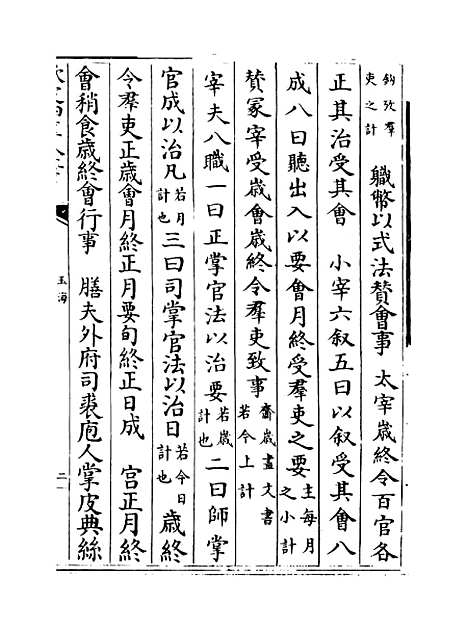 鈎攷羣吏之計　職幣以式法贊會事　太宰歲終令百官各
正其治受其會　小宰六叙五曰以叙受其會八
成八曰聽出入以要會月終受羣吏之要主每月之小計
贊冡宰受歲會歲終令羣吏致事齎歲盡文書若今上計
宰夫八職一曰正掌官法以治要若歲計也二曰師掌
官成以治凡若月計也三曰司掌官法以治目若今日計也歲終
令羣吏正歲會月終正月要旬終正日成　宫正月終
會稍食歲終會行事　膳夫外府司裘庖人掌皮典絲
玉海
二